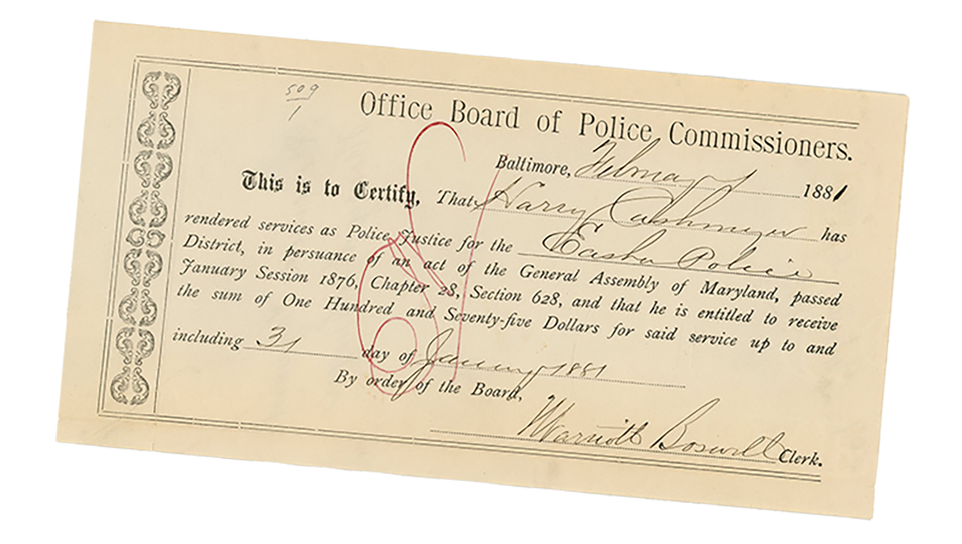 509
1
Office Board of Police Commissioners.
Baltimore, February 1 1881
This is to Certify, That Harry Cashmeyer has
rendered services as Police Justice for the Easter Police
District, in persuance of an act of the General Assembly of Maryland, passed
January Session 1876, Chapter 28, Section 628, and that he is entitled to receive
the sum of One Hundred and Seventy-five Dollars for said service up to and
including 31 day of January 1881
By order of the Board,
Marriott Boswell Clerk.